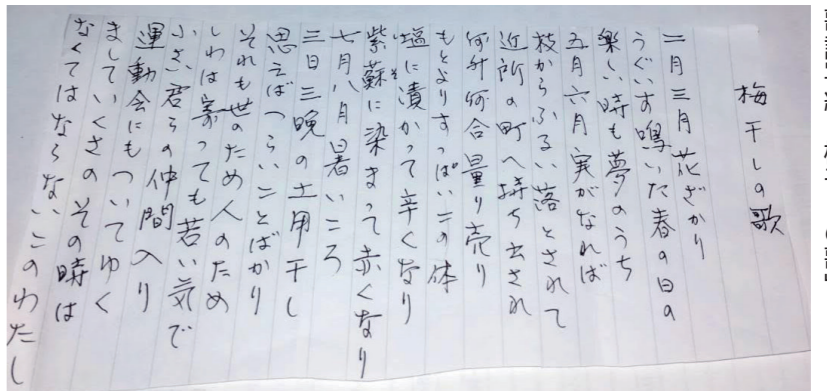 梅干しの歌
二月三月花ざかり
うぐいす鳴いた春の日の
楽しい時も夢のうち
五月六月実がなれば
枝からふるい落とされて
近所の町へ持ち出され
何升何合量り売り
もとよりすっぱいこの体
塩に漬かって辛くなり
紫蘇に染まって赤くなり
七月八月暑いころ
三日三晩の土用干し
思えばつらいことばかり
それも世のため人のため
しわは寄っても若い気で
小さい君らの仲間入り
運動会にもついてゆく
ましていくさのその時は
なくてはならないこのわたし